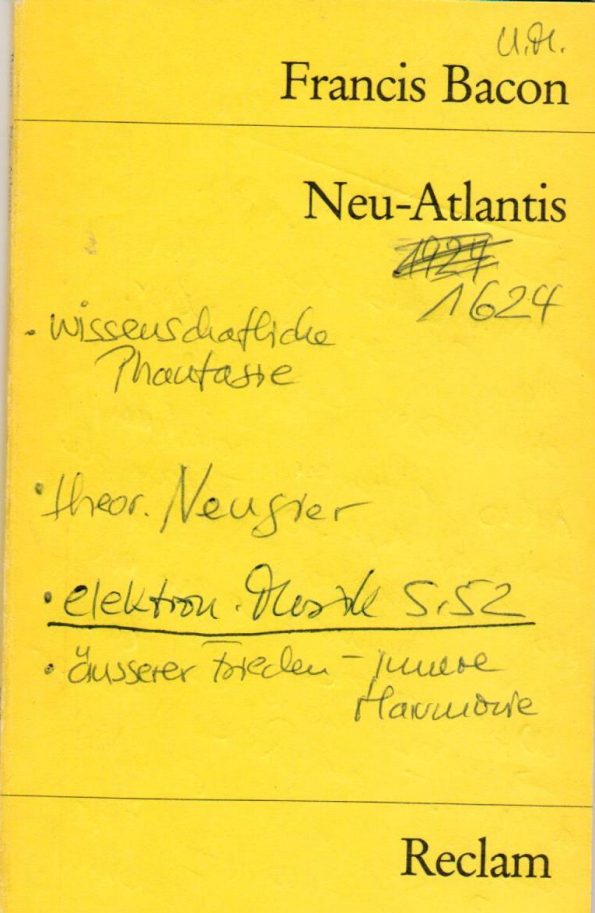 U.M.
Francis Bacon
Neu-Atlantis
1924
1624
• wissenschaftliche
Phantasie
• theor. Neugier
• elektron. Musik S.52
• äusserer Frieden – innere
Harmonie
Reclam